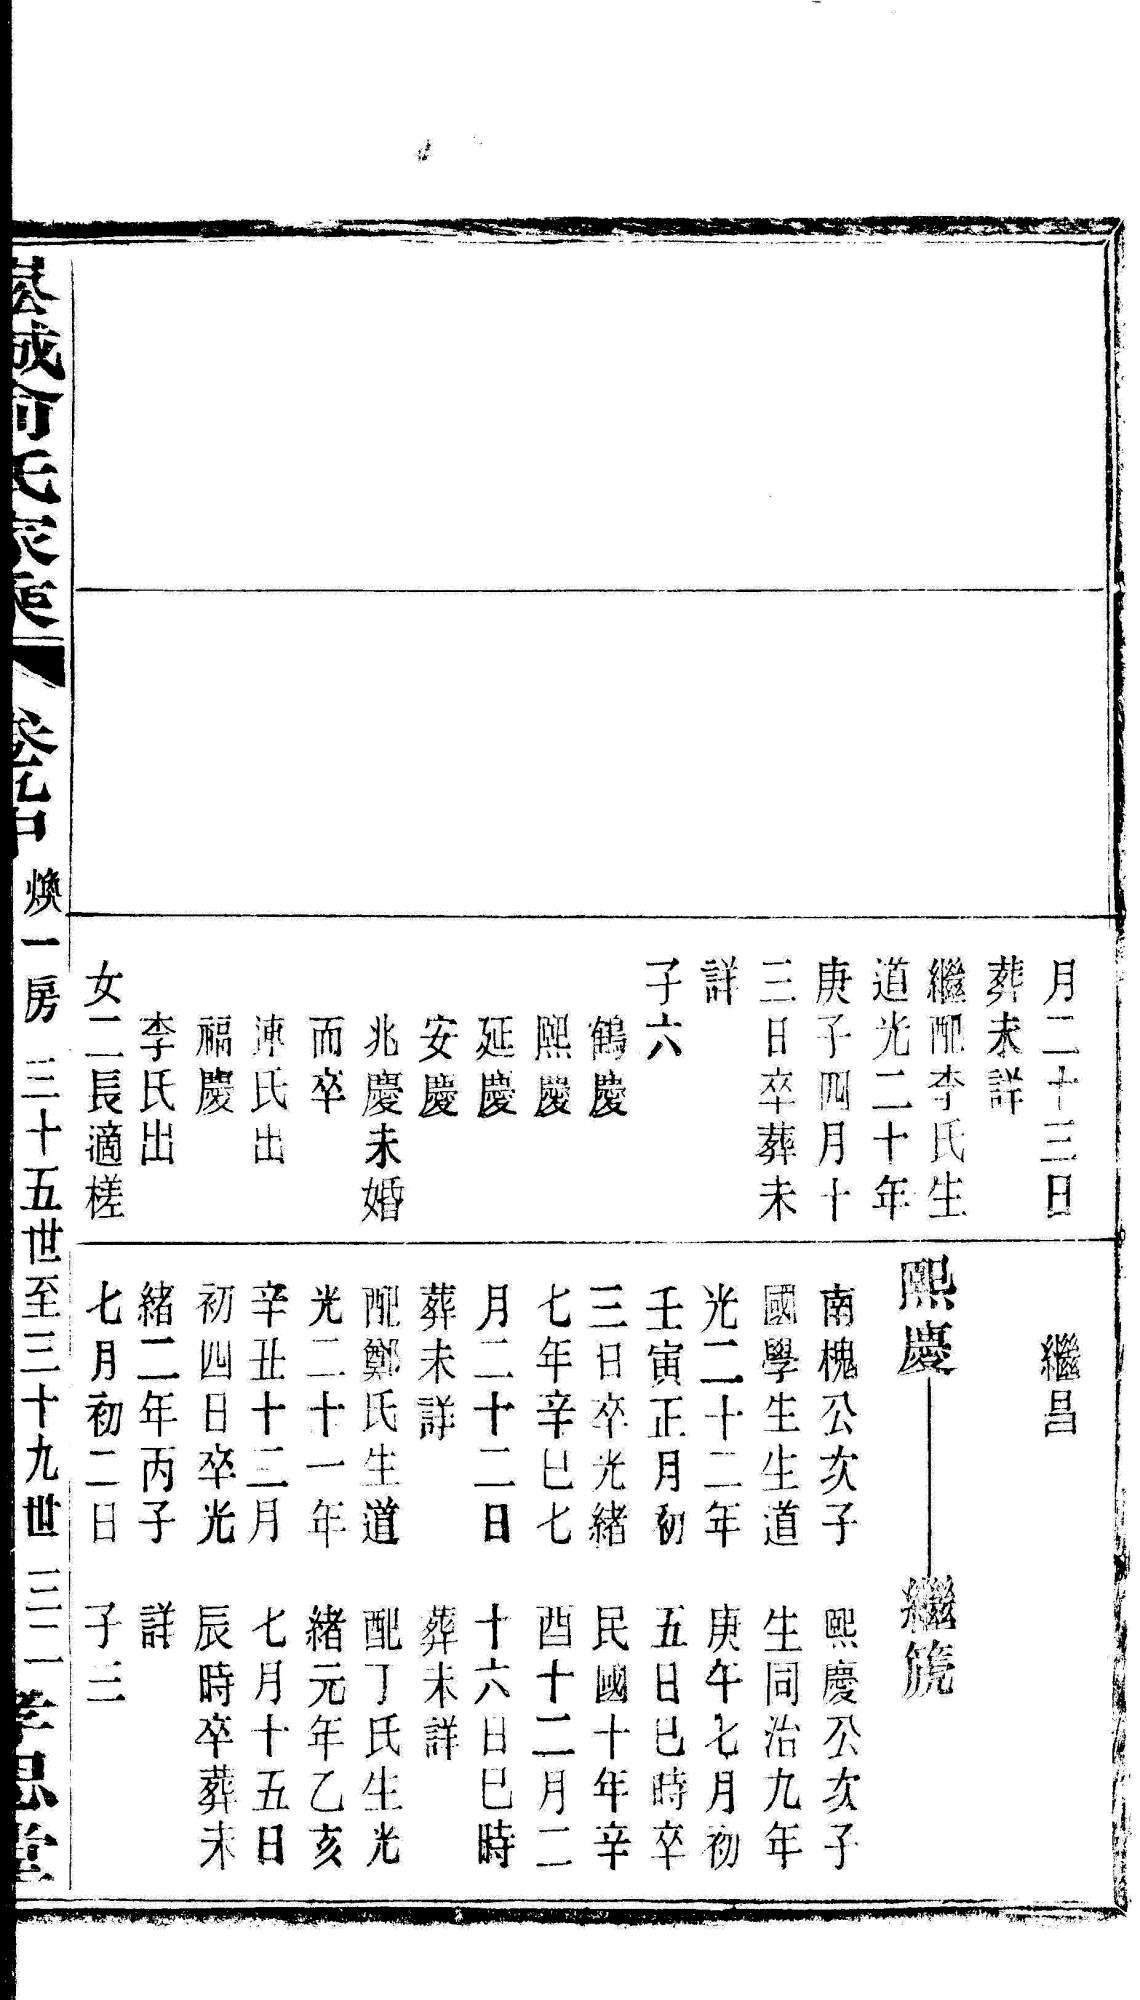 月二十三日
葬未詳
繼配李氏生
道光二十年
庚子四月十
三日卒葬未
詳
子六
鶴慶
熙慶
延慶
安慶
兆慶未婚
而卒
涷氏出
福慶
李氏出
女二長適槎
繼昌
熙慶
南槐公次子
國學生生道
光二十二年
壬寅正月初
三日卒光緒
七年辛巳七
月二十二日
葬未詳
配鄭氏生道
光二十一年
辛丑十二月
初四日卒光
緒二年丙子
七月初二日
繼箎
熙慶公次子
生同治九年
庚午七月初
五日巳時卒
民國十年辛
酉十二月二
十六日巳時
葬未詳
配丁氏生光
緒元年乙亥
七月十五日
辰時卒葬未
詳
子三
城俞氏家乘 卷中 煥一房 三十五世至三十九世 三二 孝思堂